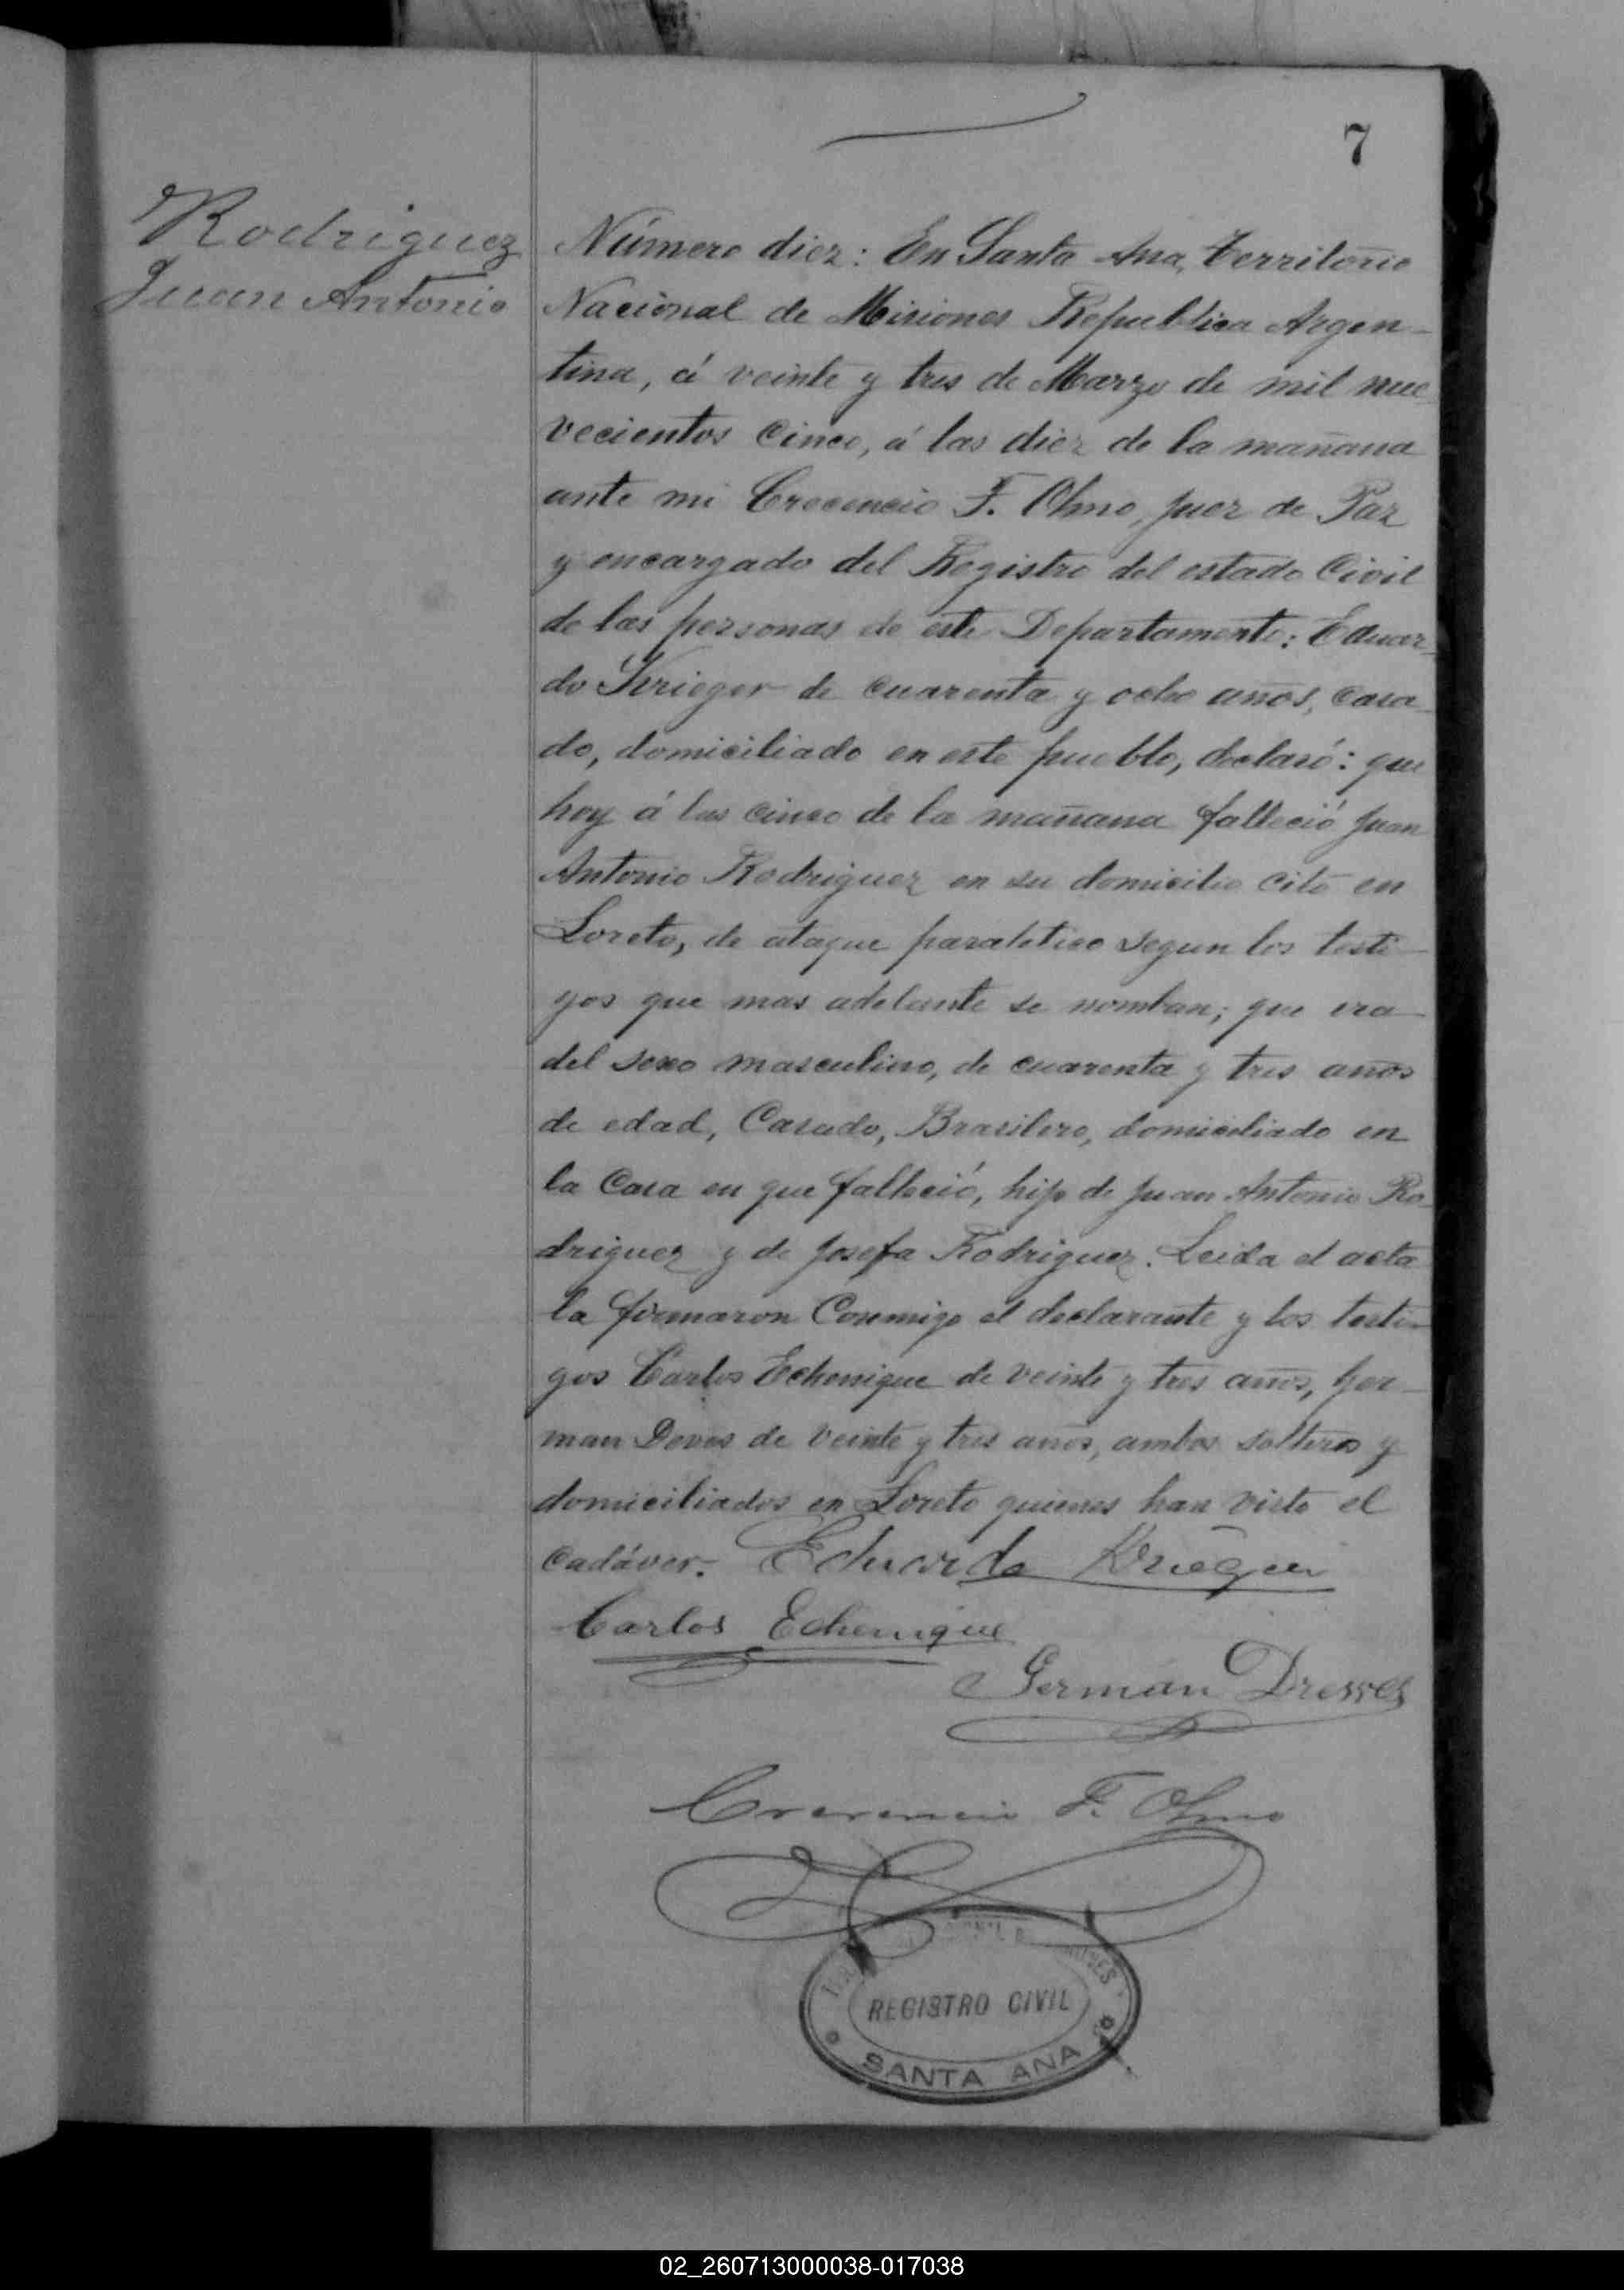 7
Rodriguez
Juan Antonio
Número diez: En Santa Ana, Territorio
Nacional de Misiones Republica Argen-
tina, á veinte y tres de Marzo de mil nue-
vecientos cinco, á las diez de la mañana
ante mi Crecencio F. Olmo, Juez de Paz
y encargado del Registro del estado Civil
de las personas de este Departamento: Eduar-
do Krieger de cuarenta y ocho años, casa-
do, domiciliado en este pueblo, declaró: que
hoy á las cinco de la mañana falleció Juan
Antonio Rodriguez en su domicilio cito en
Loreto, de ataque paraletico segun los testi-
gos que mas adelante se nomban; que era
del sexo masculino, de cuarenta y tres años
de edad, Casado, Brasilero, domiciliado en
la Casa en que falleció, hijo de Juan Antonio Ro-
driguez y de Josefa Rodriguez. Leida el acta
la firmaron Conmigo el declarante y los testi-
gos Carlos Echenique de veinte y tres años, Ger-
man Deves de veinte y tres años, ambos solteros y
domiciliados en Loreto quienes han visto el
cadáver. Eduardo Krieger
Carlos Echenique
German Dresses
Crecencio F. Olmo
REGISTRO CIVIL
SANTA ANA
02_260713000038-017038